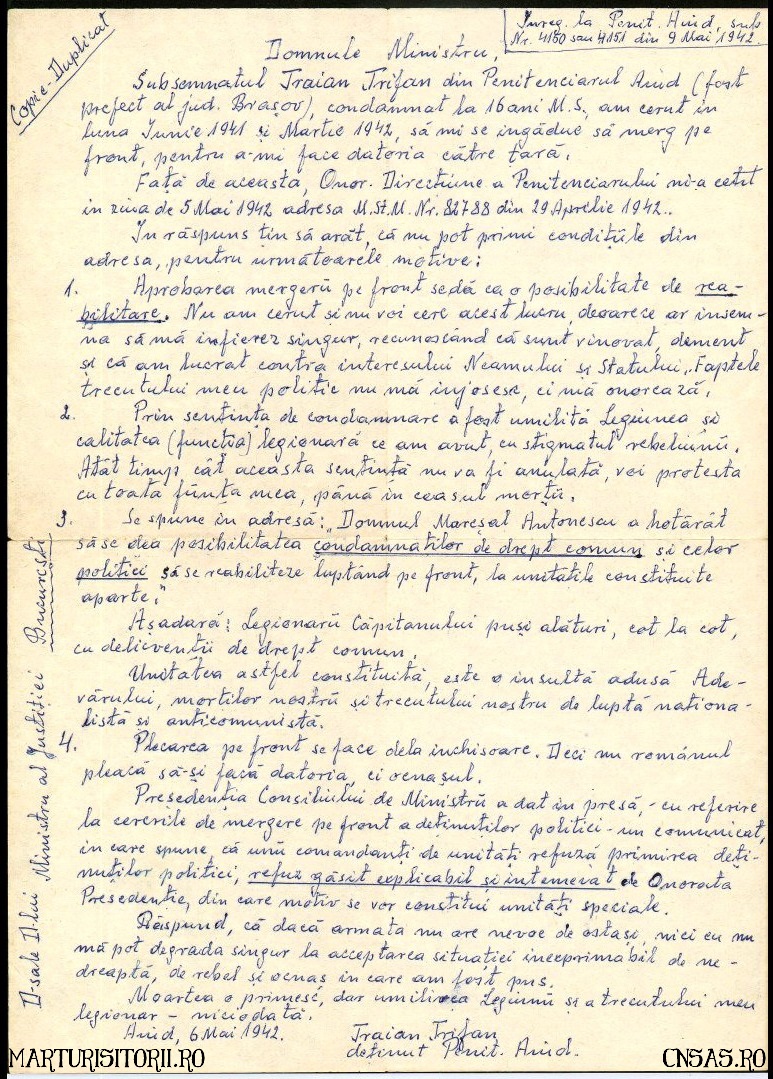 Copie-Duplicat
Inreg. la Penit. Aiud, sub
Nr. 4150 sau 4151 din 9 Mai 1942.
Domnule Ministru,
Subsemnatul Traian Trifan din Penitenciarul Aiud (fost
prefect al jud. Brașov), condamnat la 16 ani M.S., am cerut in
luna Iunie 1941 și Martie 1942, să mi se ingădue să merg pe
front, pentru a-mi face datoria către țară.
Față de aceasta, Onor. Direcțiune a Penitenciarului mi-a cetit
in ziua de 5 Mai 1942 adresa M.St.M. Nr. 82788 din 29 Aprilie 1942.
In răspuns țin să arăt, că nu pot primi condițiile din
adresa, pentru următoarele motive:
1. Aprobarea mergerii pe front se dă ca o posibilitate de rea-
bilitare. Nu am cerut și nu voi cere acest lucru, deoarece ar insem-
na să mă infierez singur, recunoscând că sunt vinovat, dement
și că am lucrat contra interesului Neamului și Statului. Faptele
trecutului meu politic nu mă injosesc, ci mă onorează.
2. Prin sentința de condamnare a fost umilită Legiunea și
calitatea (funcția) legionară ce am avut, cu stigmatul rebeliunii.
Atât timp cât aceasta sentință nu va fi anulată, voi protesta
cu toată ființa mea, până in ceasul morții.
3. Se spune in adresă: "Domnul Mareșal Antonescu a hotărât
să se dea posibilitatea condamnaților de drept comun și celor
politici să se reabiliteze luptând pe front, la unitățile constituite
aparte."
Așadară: Legionarii Căpitanului puși alături, cot la cot,
cu delicvenții de drept comun.
Unitatea astfel constituită, este o insultă adusă Ade-
vărului, morților noștrii și trecutului nostru de luptă naționa-
listă și anticomunistă.
4. Plecarea pe front se face dela inchisoare. Deci nu românul
pleacă să-și facă datoria, ci ocnașul.
Președenția Consiliului de Miniștrii a dat in presă, - cu referire
la cererile de mergere pe front a deținuților politici - un comunicat,
in care spune, că unii comandanți de unități refuză primirea deți-
nuților politici, refuz găsit explicabil și intemeiat de Onorata
Președenție, din care motiv se vor constitui unități speciale.
Răspund, că dacă armata nu are nevoe de ostași, nici eu nu
mă pot degrada singur la acceptarea situației inexprimabil de ne-
dreaptă, de rebel și ocnaș in care am fost pus.
Moartea o primesc, dar umilirea Legiunii și a trecutului meu
legionar - niciodată.
Aiud, 6 Mai 1942.
Traian Trifan
deținut Penit. Aiud.
D-sale D-lui Ministru al Justiției București
MARTURISITORII.RO
CNSAS.RO